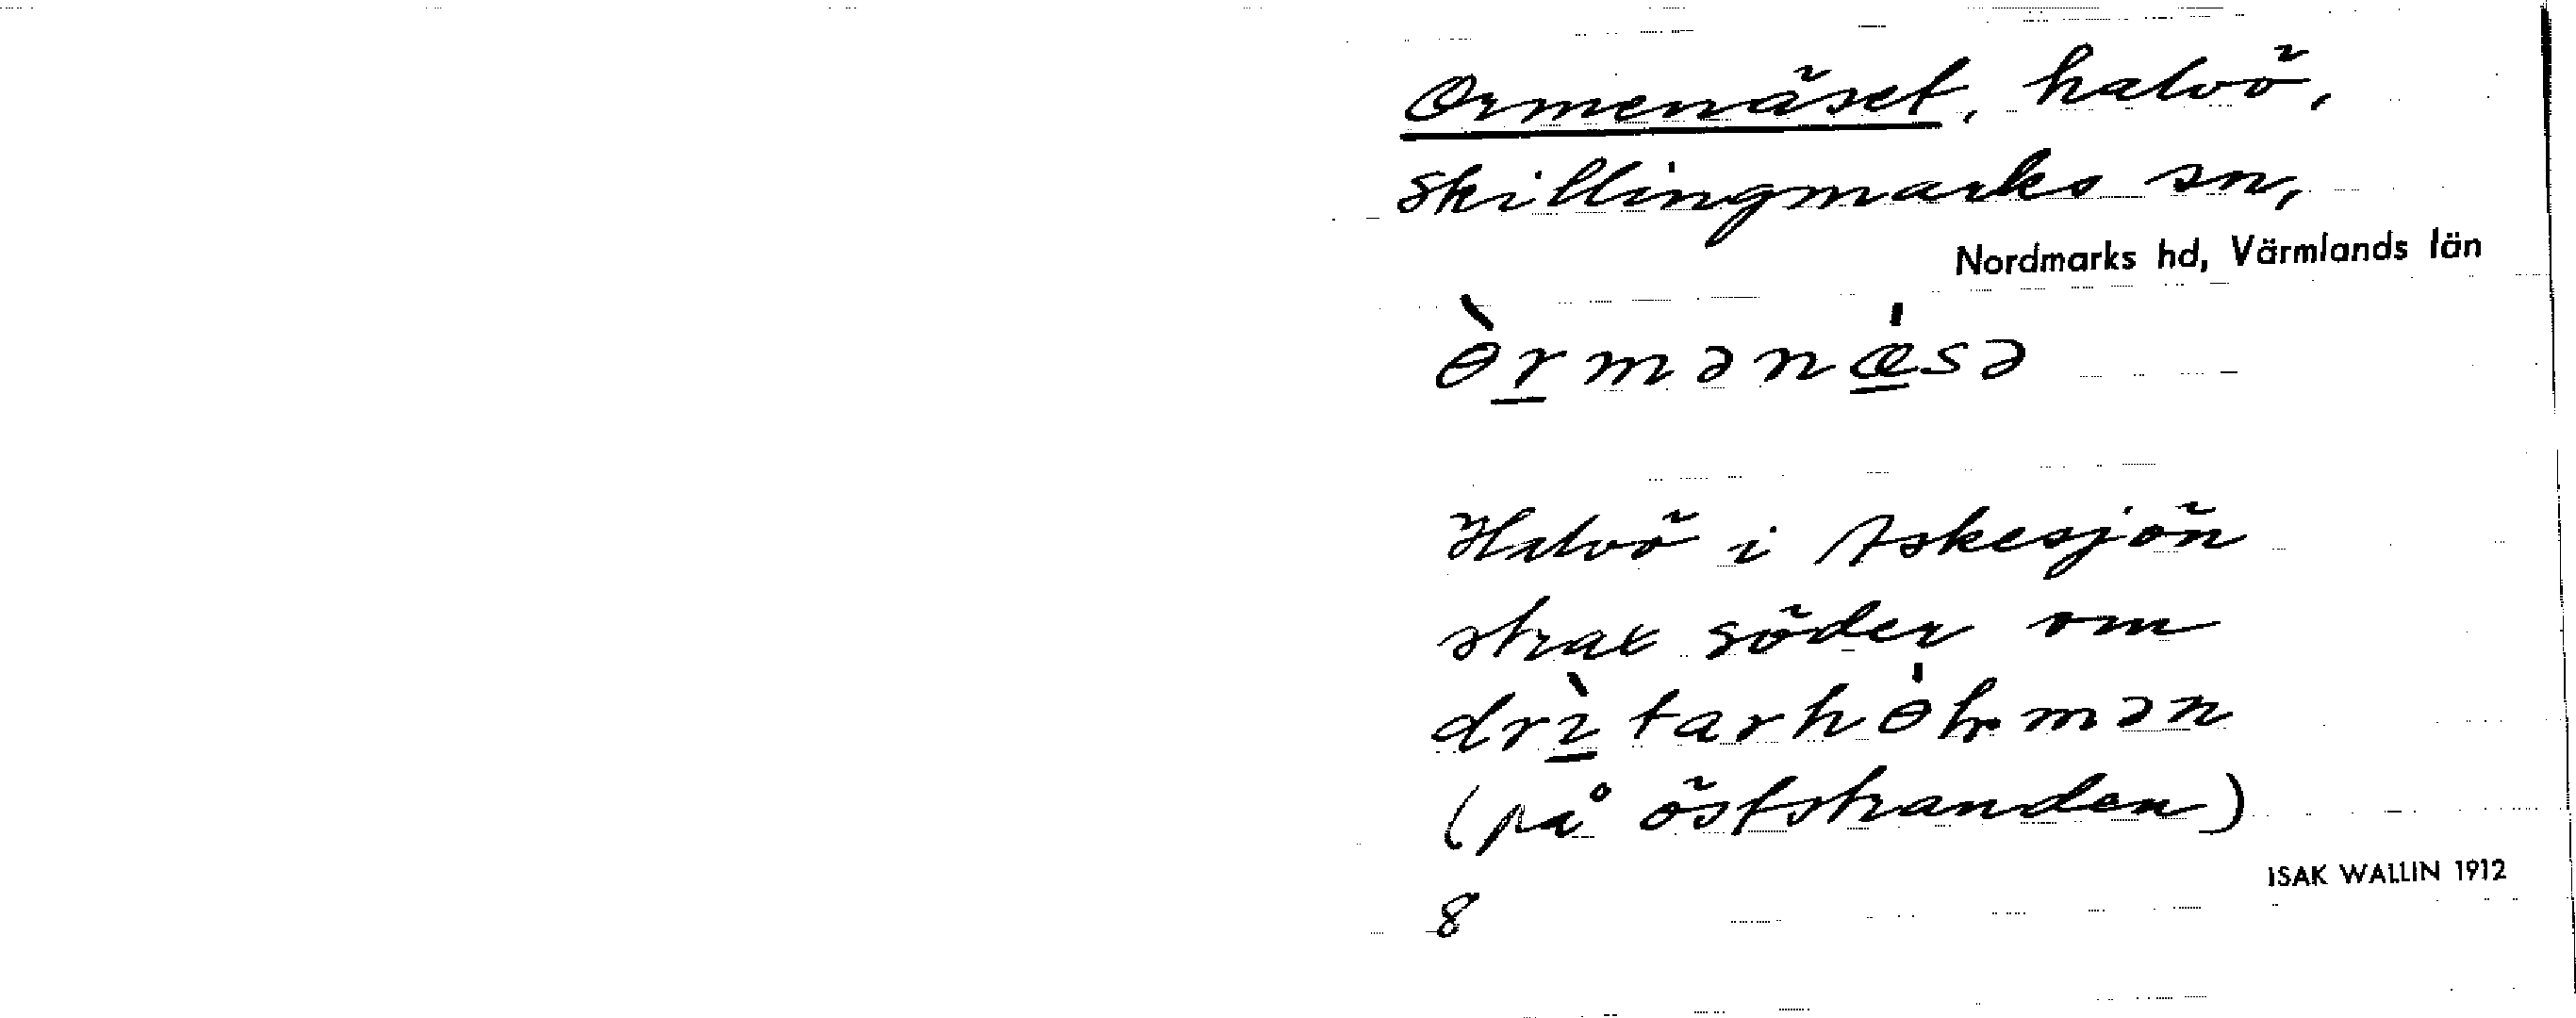 Ormenäset, halvö,
Skillingmarks sn,
Nordmarks hd, Värmlands län
ɵ̀r̲mənæ̲̍sə
Halvö i Askesjön
strax söder om
drì̲tarhɵ̍ɫmən
(på öststranden)
ISAK WALLIN 1912
8